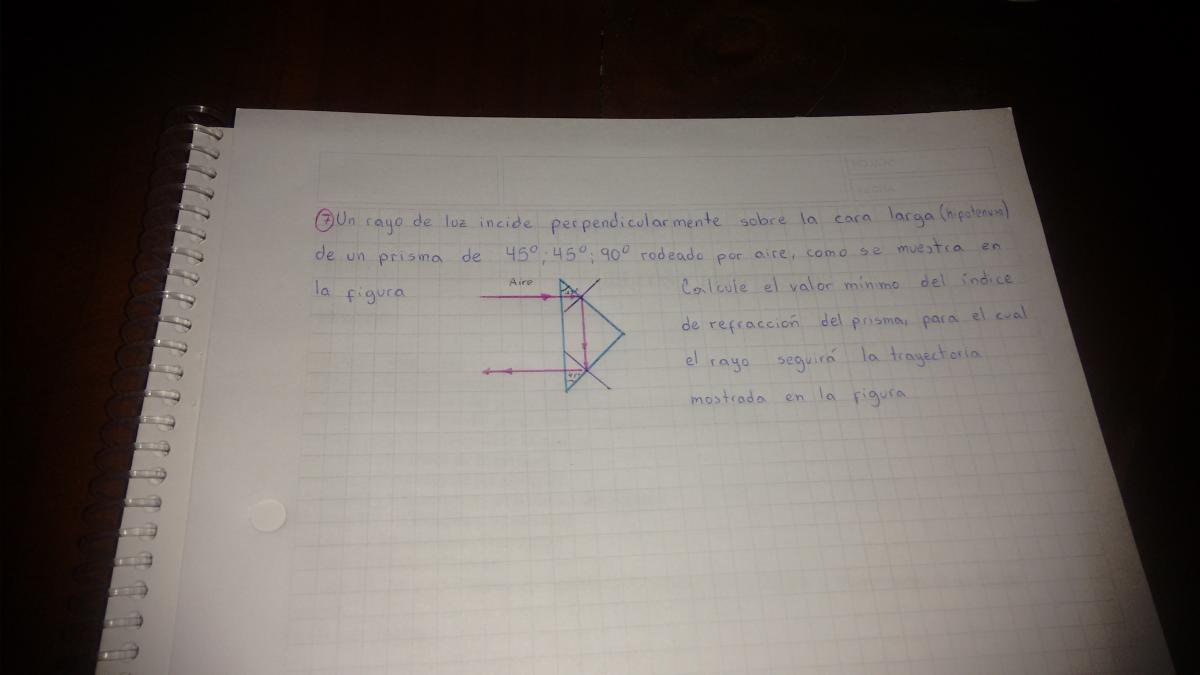 7 Un rayo de luz incide perpendicularmente sobre la cara larga (hipotenusa)
de un prisma de 45°; 45°; 90° rodeado por aire, como se muestra en
la figura
Aire
45°
45°
Calcule el valor mínimo del índice
de refracción del prisma, para el cual
el rayo seguirá la trayectoria
mostrada en la figura